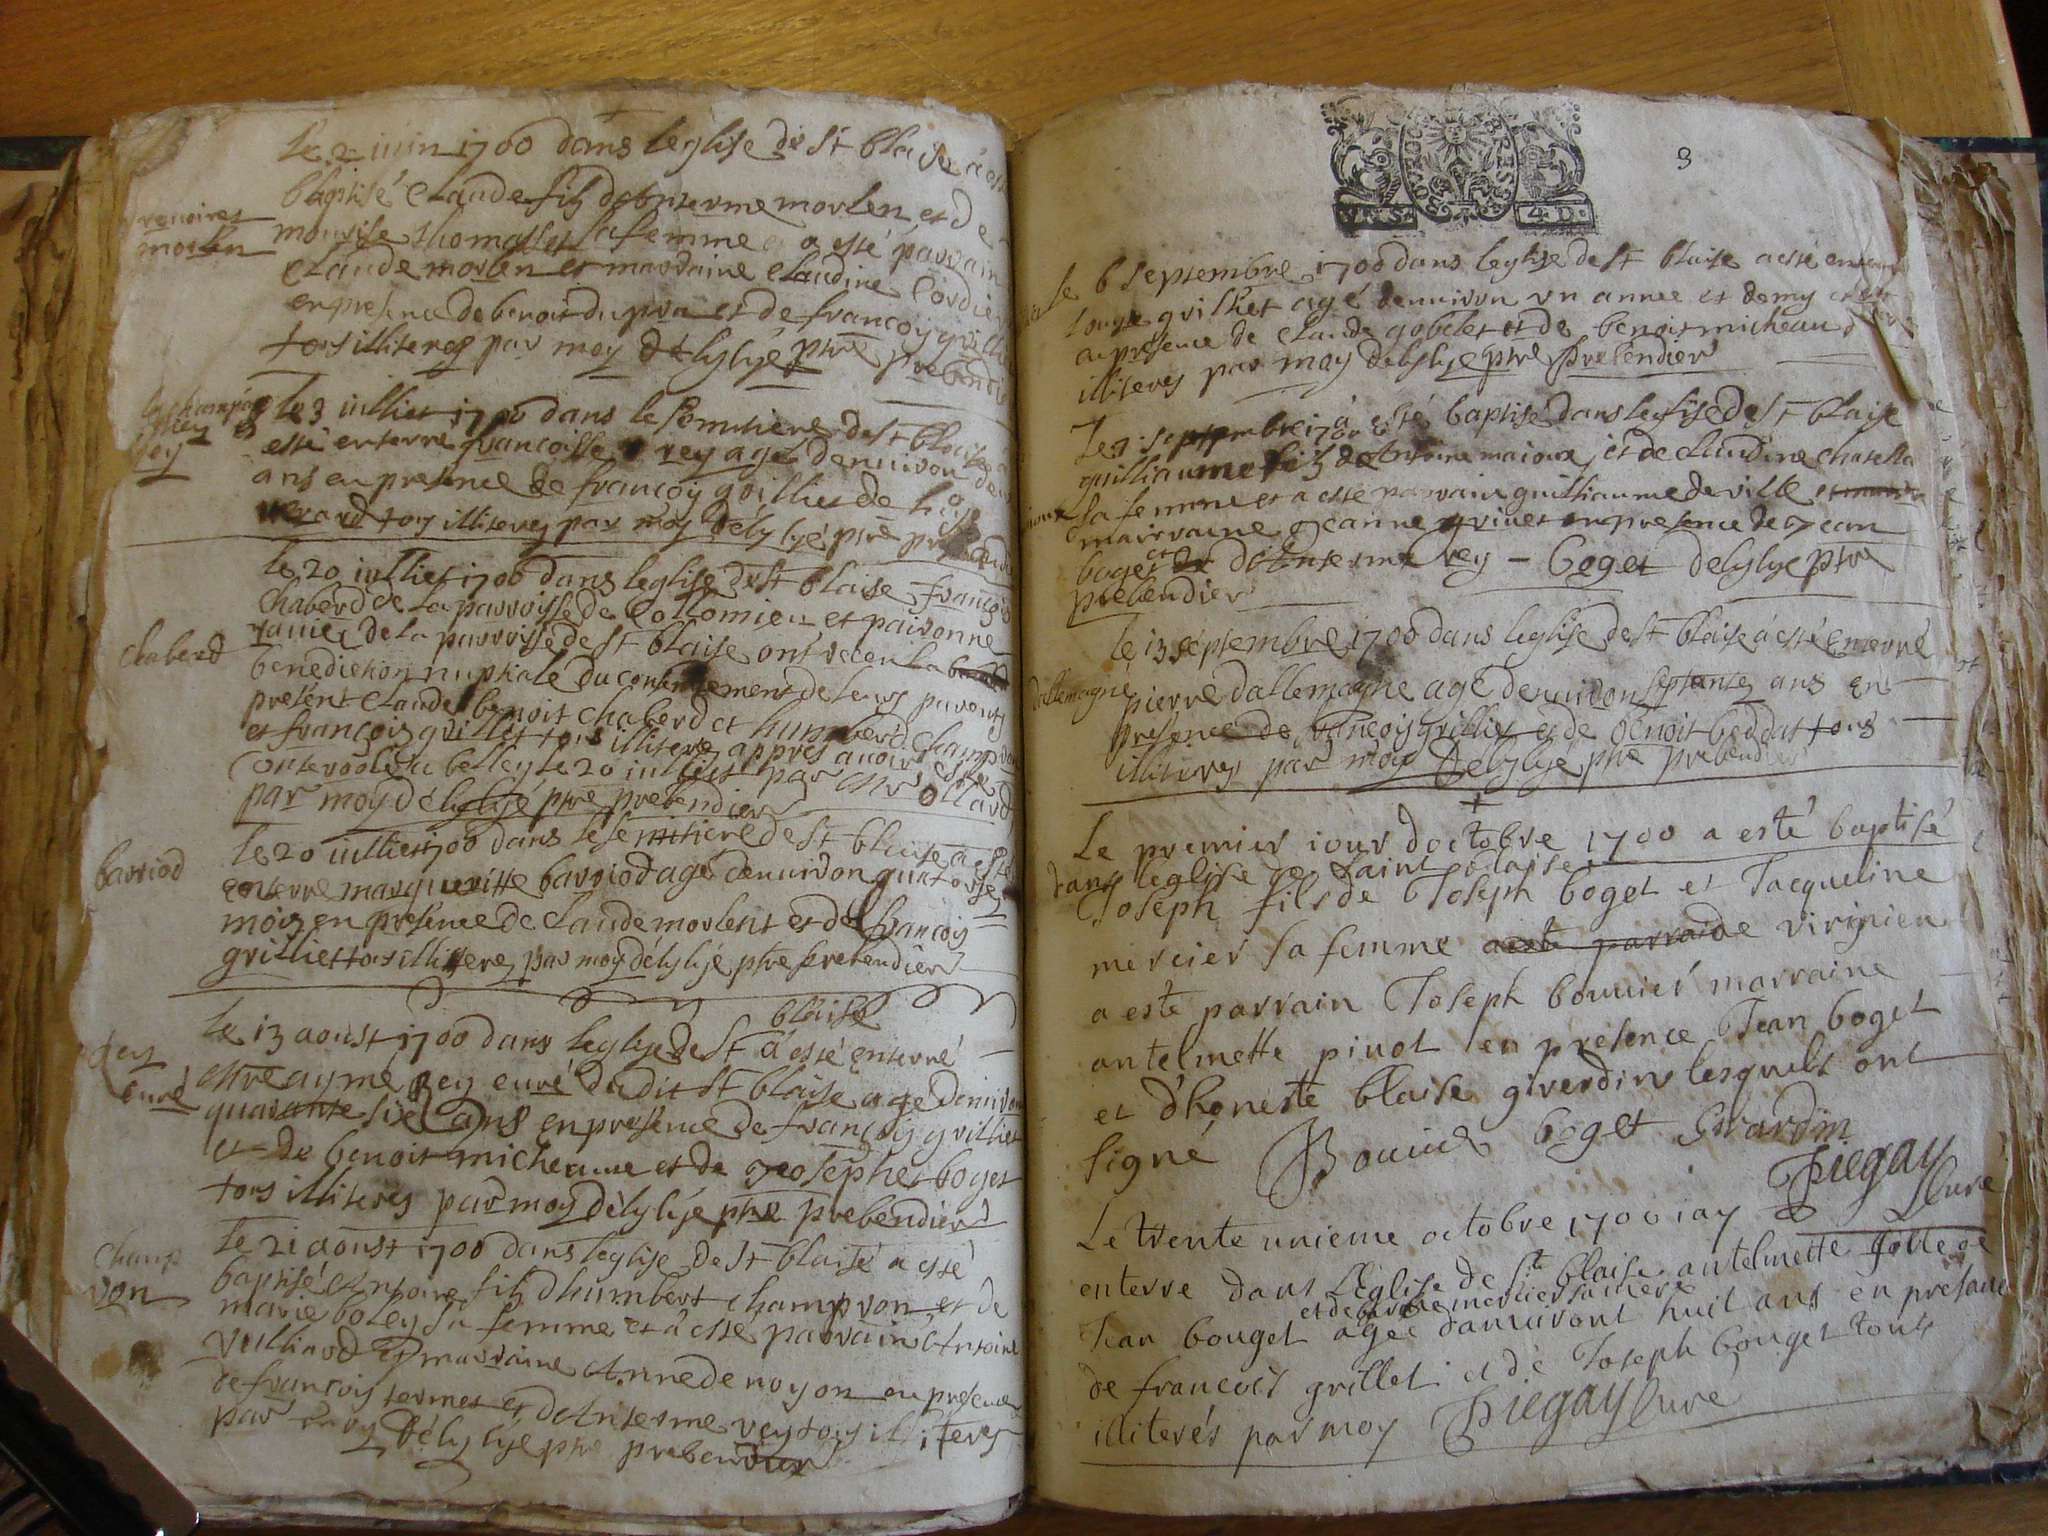 le 2 iuin 1700 dans leglise de St blaise a esté
baptisé Claude filz dAnterme morlen et de
renoires
morlen
thomasset sa femme et a esté parrain
Claude morlen et marraine Claudine Cordier
en presence de benoit du pra et de francoy grilliet
tous illiteres par moy délylyé ptre prebendier
le 3 iulliet 1700 dans le Semitiere de St blaise a
rey
esté enterré francoisse rey agé denuiron deux
ans en presence de francoy grilliet de
tous illiteres par moy délylyé ptre prebendier
le 20 iulliet 1700 dans leglise de St blaise françois
Chaberd de la parroisse de Collomieu et
chaberd
de la parroisse de St blaise ont receu la
benediction nuptiale du consentement de leurs parents
present Claude benoit chaberd et humberd champuon
et françois grilliet tous illiteres appres auoir esté
a belley le 20 iulliet par
par moy délylyé ptre prebendier
le 20 iulliet 1700 dans le Semitiere de St blaise a esté
barriod
enterré margueritte barriod agé denuiron quatorse
mois en presence de Claude morlent et de francoy
grilliet tous illiteres par moy délylyé ptre prebendier
blaise
le 13 aoust 1700 dans leglyse de St a esté enterré
rey
curé
aymé Rey curé dudit St blaise agé denuiron
quarante six ans en presence de francoy grilliet
et de benoit micheaume et de Joseph boget
tous illiteres par moy délylyé ptre prebendier
le 21 aoust 1700 dans leglise de St blaise a esté
champ
von
baptisé Antoine filz dhumbert champvon et de
marie boley sa femme et a esté parrain Antoine
vulliard et marraine Anne de noyon en presence
de francois termet et dAnterme rey tous illiteres
par moy délylyé ptre prebendier
3
4 D.
le 6 septembre 1700 dans leglise de St blaise a esté enterré
Louyse grilliet agé denuiron un annee et demy
en presence de Claude gobelet et de benoit micheaud
illiteres par moy delylye ptre prebendier
Le 7 septembre 1700 a esté baptisé dans leglise de St blaise
guilliaume filz dAntoine maioux et de Claudine chatella
sa femme et a esté parrain guilliaume deville
marraine Jeanne en presence de Jean
boget et dAnterme rey – boget delylye ptre
prebendier
le 13 septembre 1700 dans leglise de St blaise a esté enterré
dallemagne
pierre dallemagne agé denuiron septante ans en
presence de francoy grilliet et de benoit beddat tous
illiteres par moy Délylyé ptre prebendier
Le premier iour doctobre 1700 a esté baptisé
dans leglise de Saint blaise
Joseph fils de Joseph boget et Jacqueline
mercier sa femme a esté parrain de virignien
a esté parrain Joseph bouuier marraine
antelmette piuot en presence Jean boget
et d'honeste blaise girerdin lesquels ont
signé Bouuier boget Girardin
Piegay
Curé
Le trente unieme octobre 1700 iay
enterre dans l'Eglise de St blaise antelmette fille de
et de mercier sa mere
Jean bouget agée danuiront huit ans en presance
de francois grillet et de Joseph bouget touts
illiterés par moy Piegay Curé